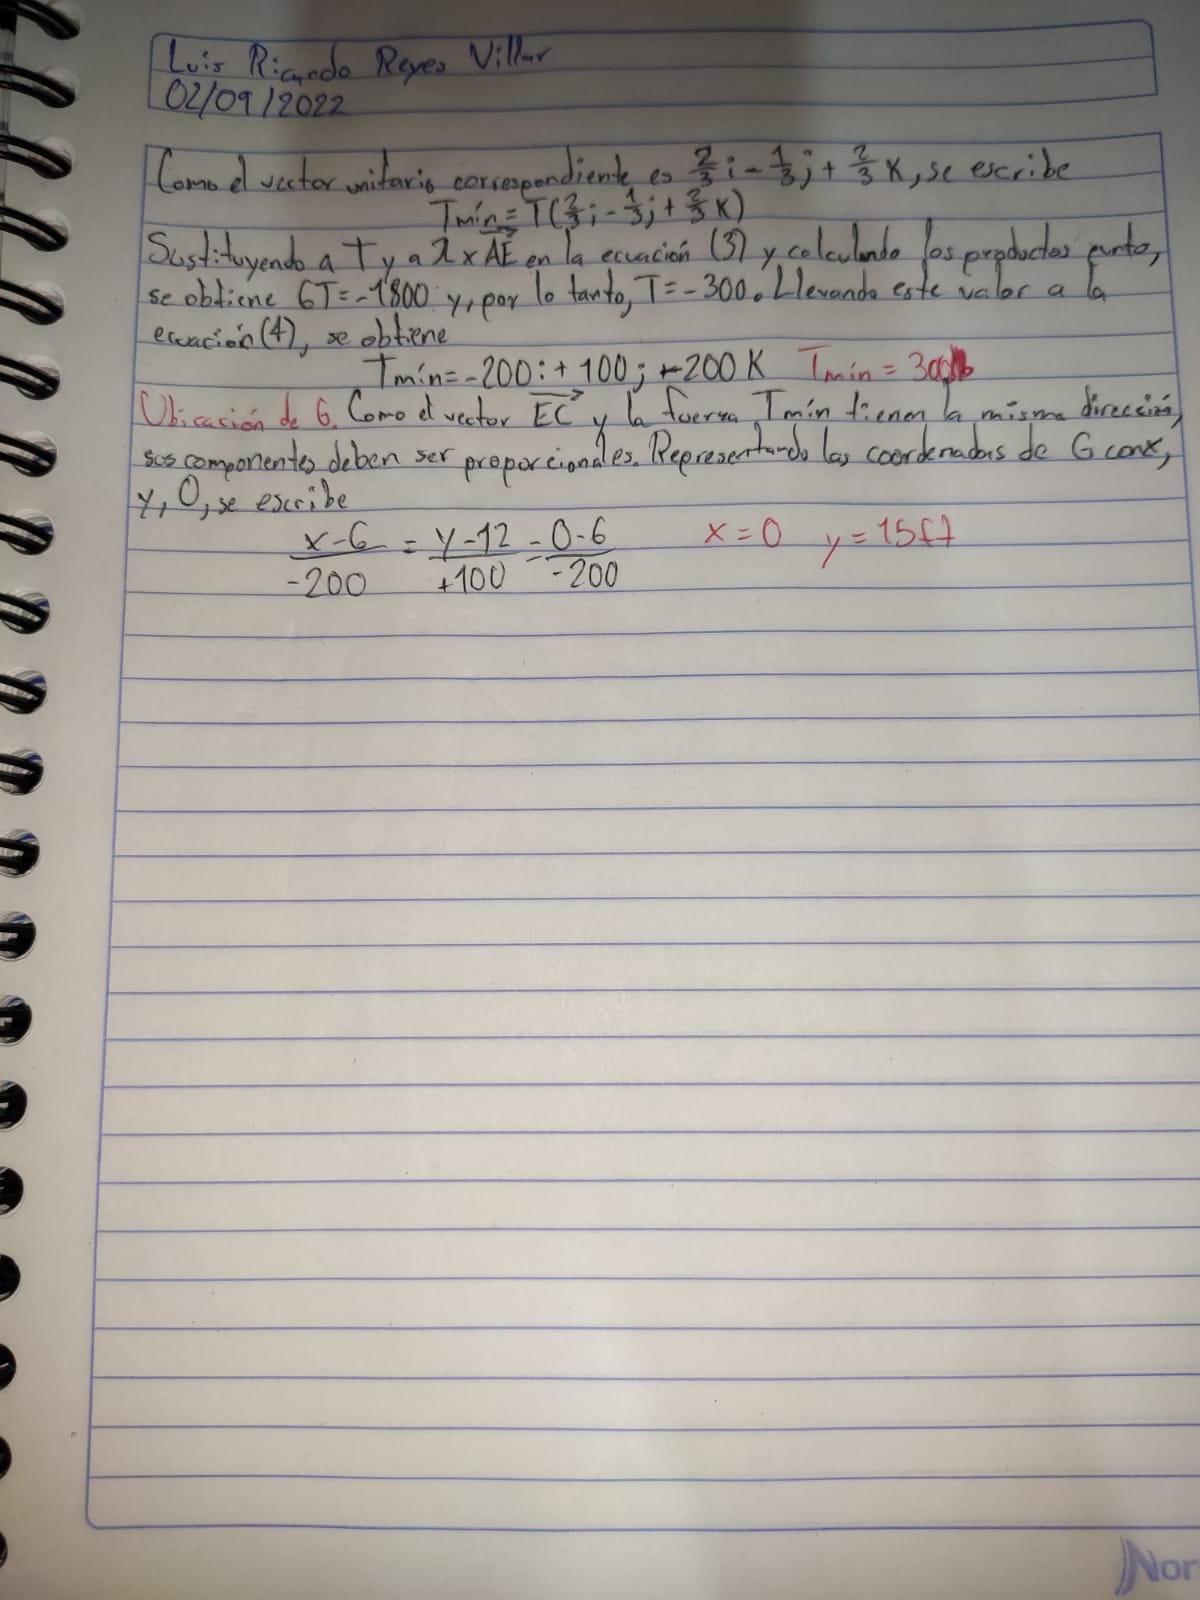 Luis Ricardo Reyes Villar
02/09/2022
Como el vector unitario correspondiente es 2/3 i - 1/3 j + 2/3 K, se escribe
Tmín = T(2/3 i - 1/3 j + 2/3 K)
Sustituyendo a T y a λ x AE en la ecuación (3) y calculando los productos punto,
se obtiene 6T = -1800 y, por lo tanto, T = -300. Llevando este valor a la
ecuación (4), se obtiene
Tmín = -200i + 100j - 200K Tmín = 300lb
Ubicación de G. Como el vector EC y la fuerza Tmín tienen la misma dirección,
sus componentes deben ser proporcionales. Representando las coordenadas de G con x,
y, 0, se escribe
x-6/-200 = y-12/+100 = 0-6/-200 x = 0 y = 15ft
Nor